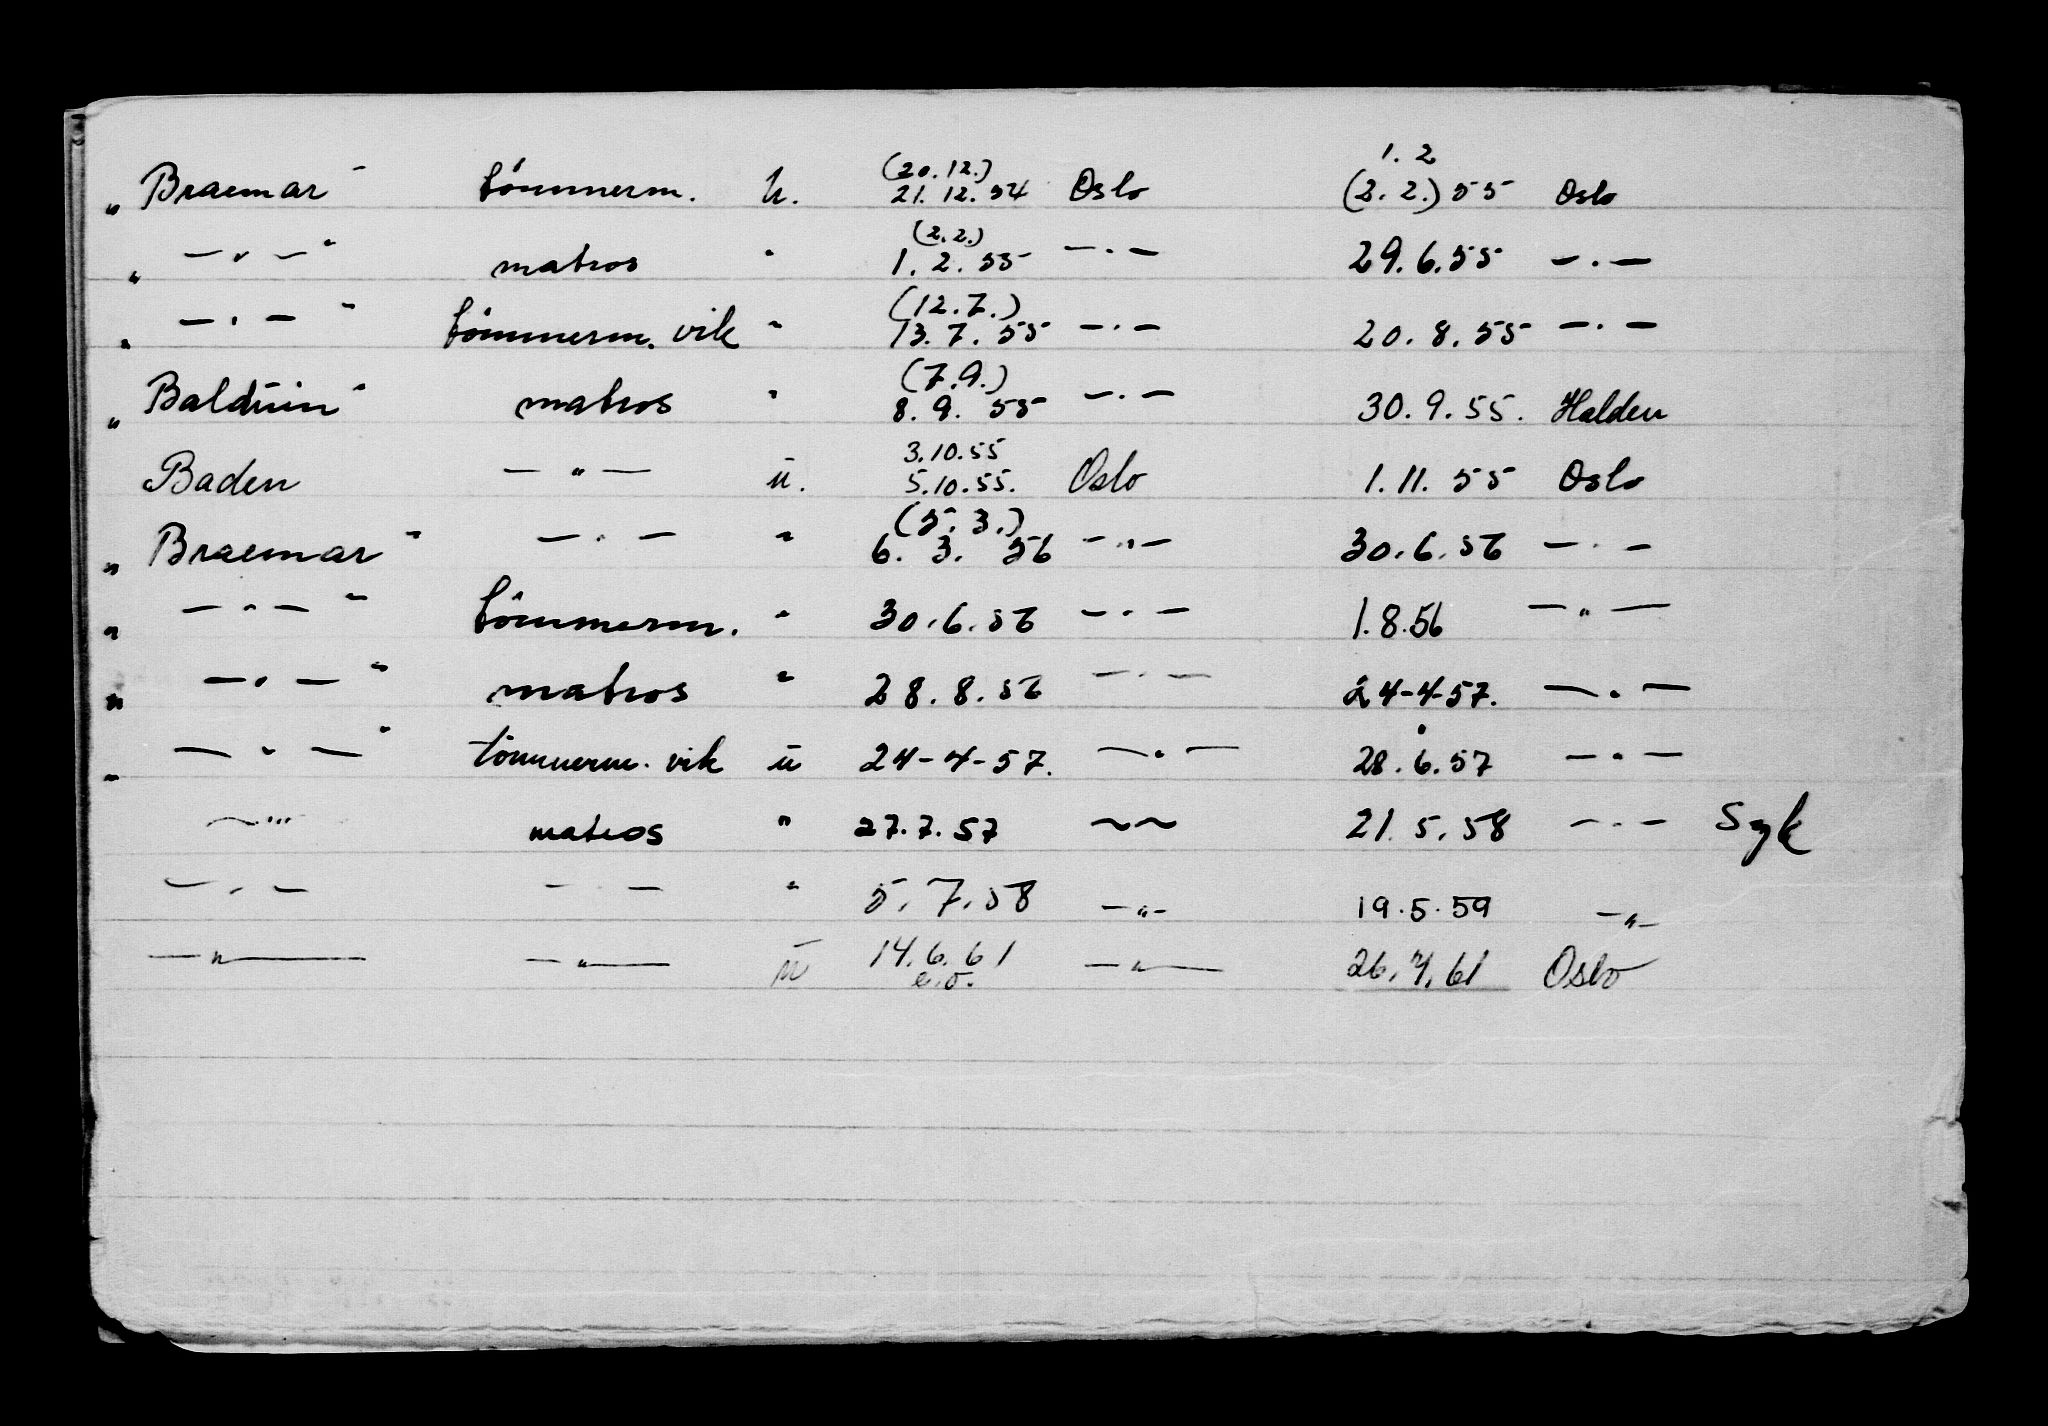 „ Braemar " tömmerm. u. (20.12.) 21.12.54 Oslo 1.2 (2.2.) 55 Oslo
„ — " — " matros " (2.2.) 1.2.55 — " — 29.6.55 — " —
„ — " — " tömmerm. vik " (12.7.) 13.7.55 — " — 20.8.55 — " —
„ Balduin " matros " (7.9.) 8.9.55 — " — 30.9.55. Halden
Baden — " — u. 3.10.55 5.10.55. Oslo 1.11.55 Oslo
„ Braemar " — " — " (5.3.) 6.3.56 — " — 30.6.56 — " —
„ — " — " tömmerm. " 30.6.56 — " — 1.8.56 — " —
„ — " — " matros " 28.8.56 — " — 24-4-57. — " —
„ — " — " tömmerm. vik u 24-4-57. — " — 28.6.57 — " —
— " — matros " 27.7.57 — " — 21.5.58 — " — Syk
— " — — " — " 5.7.58 — " — 19.5.59 — " —
— " — — " — u 14.6.61 e.o. — " — 26.7.61 Oslo